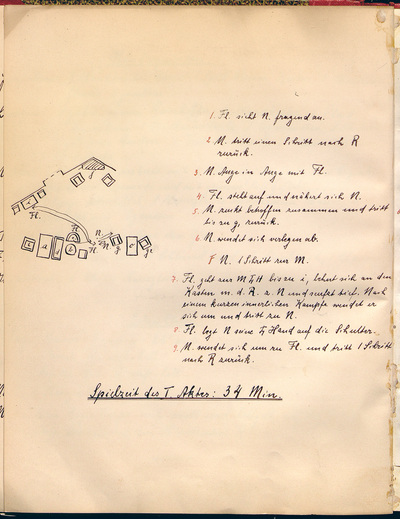 1. Fl. sieht N. fragend an.
2. M. tritt einen Schritt nach R
zurück.
3. M. Auge in Auge mit Fl.
4. Fl. steht auf und nähert sich N.
5. M. zuckt betroffen zusammen und tritt
bis zu g, zurück.
6. M. wendet sich verlegen ab.
N. 1 Schritt zur M.
7. Fl. geht aus bis zu i, lehnt sich an den
Kasten m. d. R. z. N und seufzt tief. Nach
einem kurzen innerlichen Kampfe wendet er
sich um und tritt zu N.
8. Fl. legt N seine Hand auf die Schulter.
9. M. wendet sich um zu Fl. und tritt 1 Schritt
nach R zurück.
Fl.
Fl.
N.
a
b
e
g
Spielzeit des I. Aktes: 34 Min.